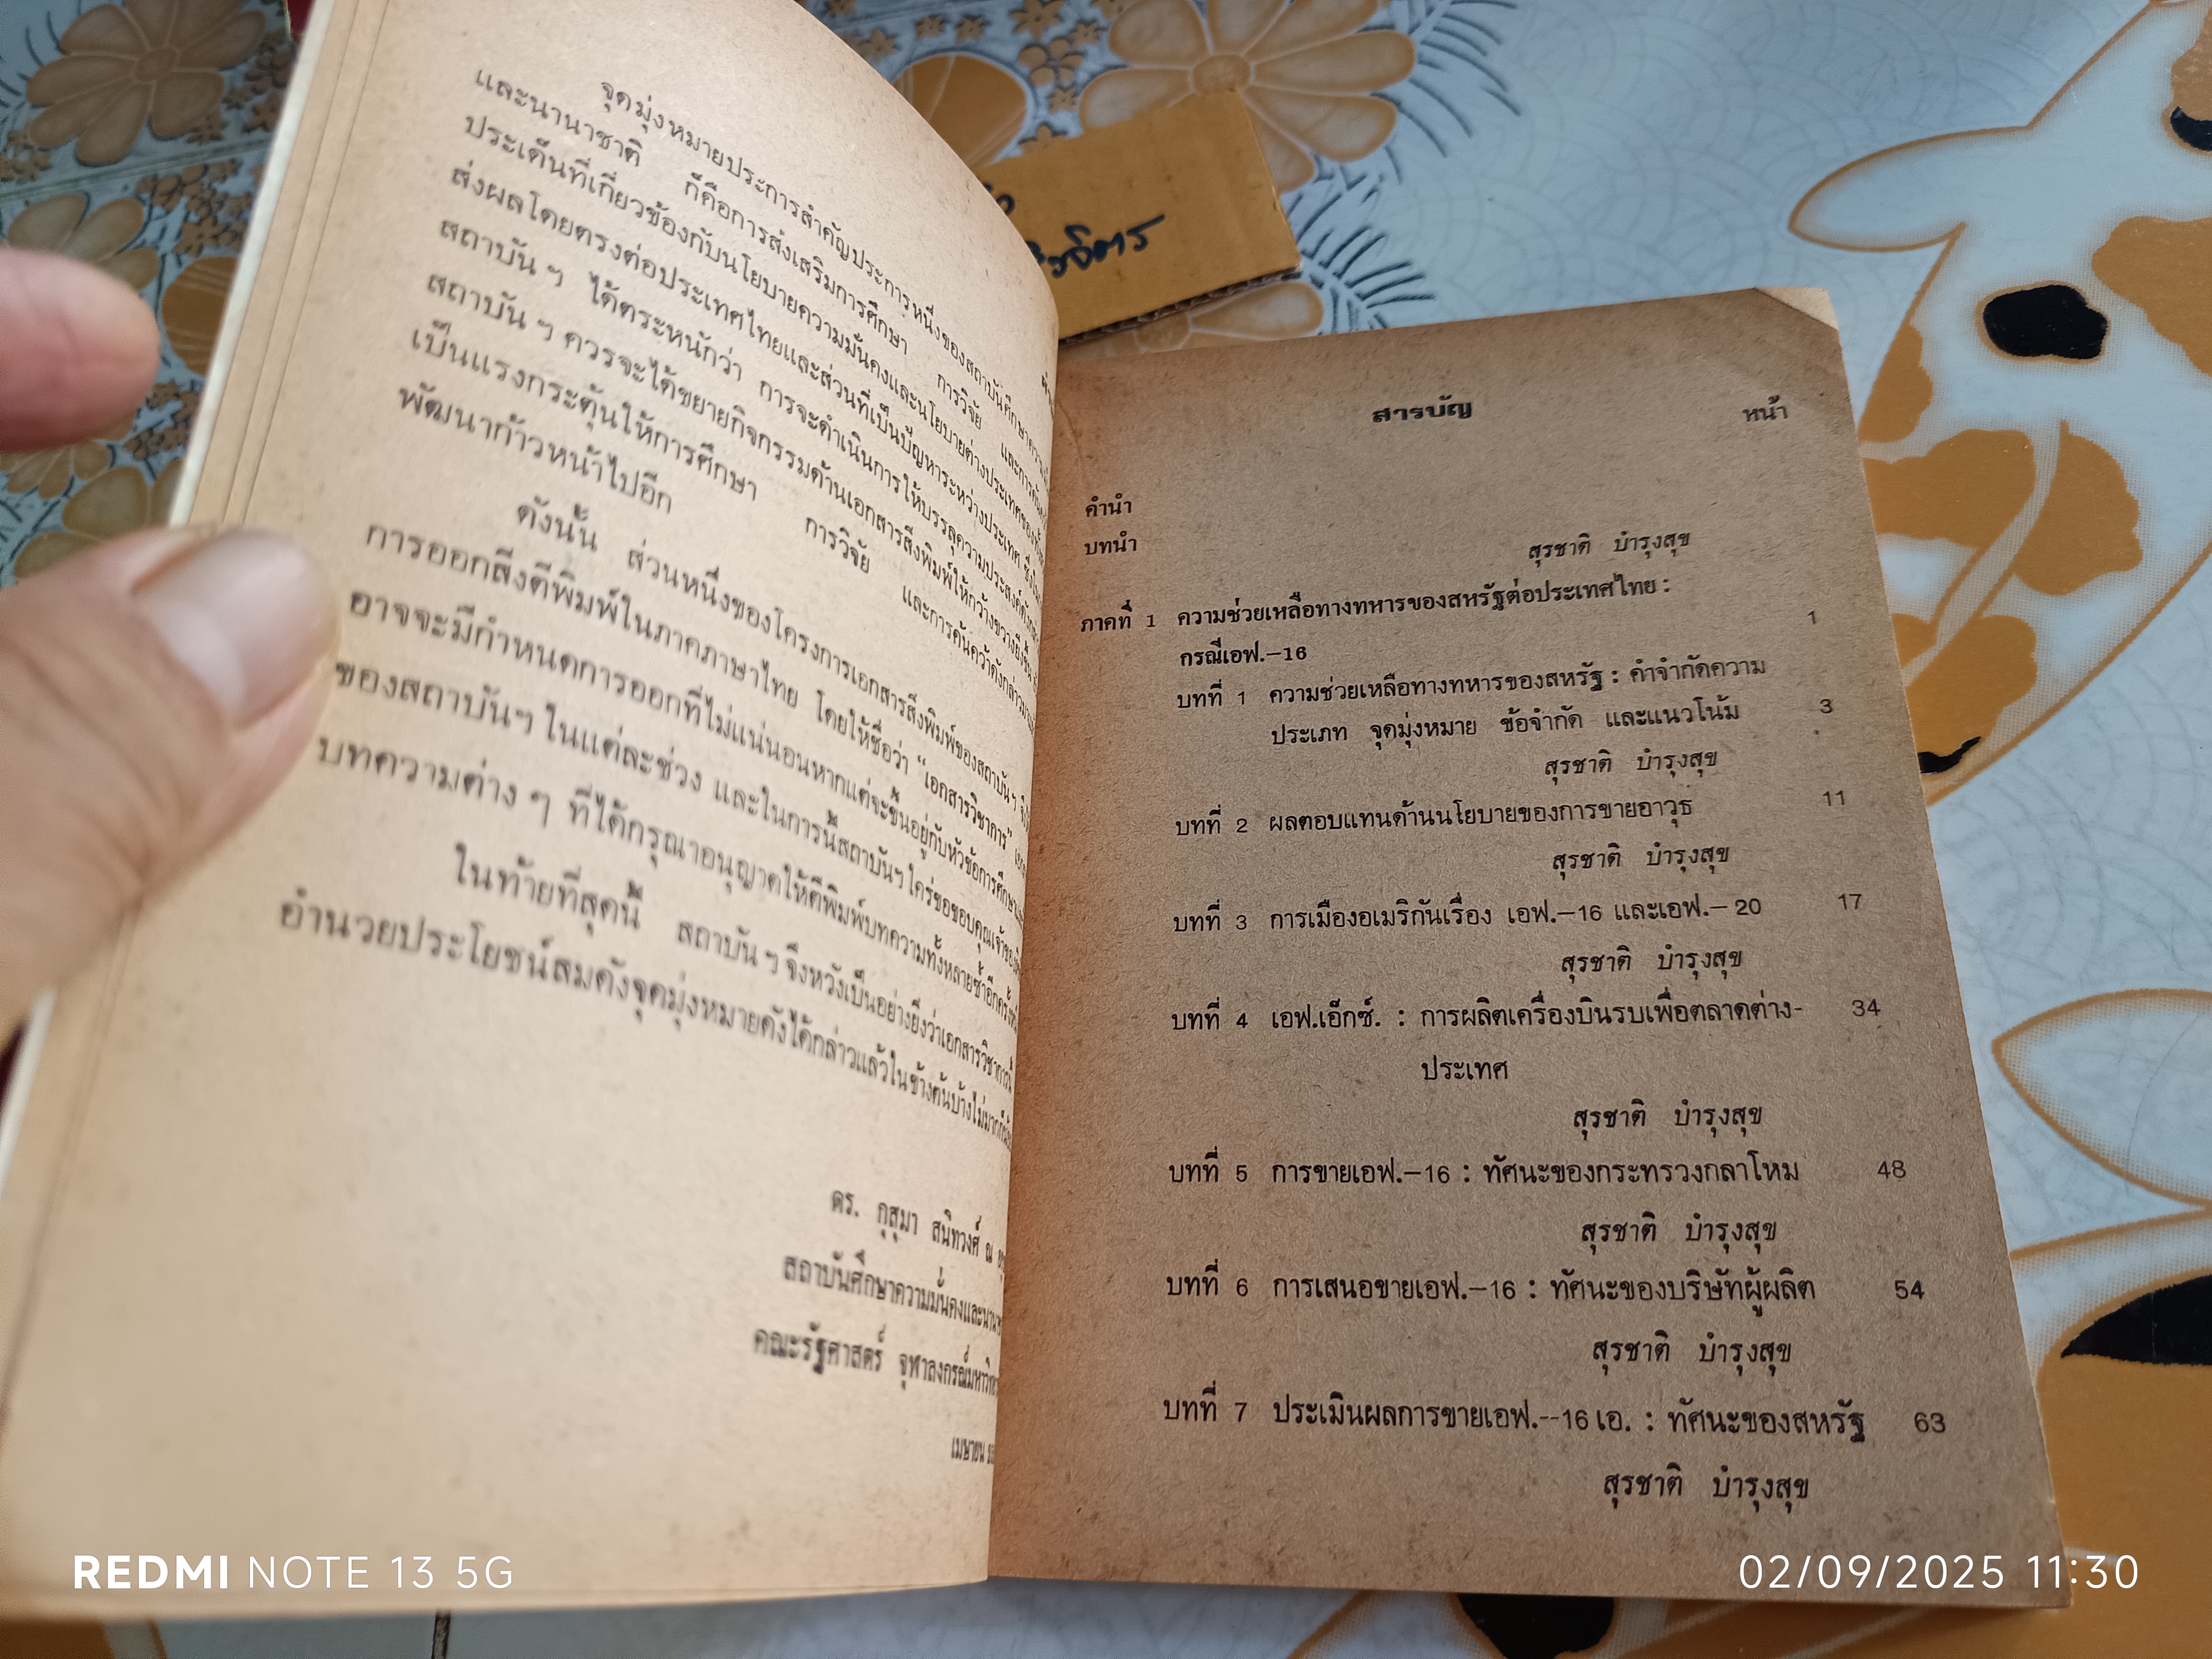 จุดมุ่งหมายประการสำคัญประการหนึ่งของสถาบันศึกษาความมั่นคง
และนานาชาติ ก็คือการส่งเสริมการศึกษา การวิจัย และการค้นคว้า
ประเด็นที่เกี่ยวข้องกับนโยบายความมั่นคงและนโยบายต่างประเทศของ
ส่งผลโดยตรงต่อประเทศไทยและส่วนที่เป็นปัญหาระหว่างประเทศ ซึ่งใน
สถาบัน ฯ ได้ตระหนักว่า การจะดำเนินการให้บรรลุความประสงค์
สถาบัน ฯ ควรจะได้ขยายกิจกรรมด้านเอกสารสิ่งพิมพ์ให้กว้างขวางยิ่งขึ้น
เป็นแรงกระตุ้นให้การศึกษา การวิจัย และการค้นคว้าดังกล่าว
พัฒนาก้าวหน้าไปอีก
ดังนั้น ส่วนหนึ่งของโครงการเอกสารสิ่งพิมพ์ของสถาบัน ฯ
การออกสิ่งตีพิมพ์ในภาคภาษาไทย โดยให้ชื่อว่า “เอกสารวิชาการ”
อาจจะมีกำหนดการออกที่ไม่แน่นอนหากแต่จะขึ้นอยู่กับหัวข้อการศึกษา
ของสถาบันฯ ในแต่ละช่วง และในการนี้สถาบันฯ ใคร่ขอขอบคุณเจ้าของ
บทความต่าง ๆ ที่ได้กรุณาอนุญาตให้ตีพิมพ์บทความทั้งหลายซ้ำอีกครั้ง
ในท้ายที่สุดนี้ สถาบัน ฯ จึงหวังเป็นอย่างยิ่งว่าเอกสารวิชาการนี้
อำนวยประโยชน์สมดังจุดมุ่งหมายดังได้กล่าวแล้วในข้างต้นบ้างไม่มากก็น้อย
ดร. กุสุมา สนิทวงศ์ ณ
สถาบันศึกษาความมั่นคงและนานา
คณะรัฐศาสตร์ จุฬาลงกรณ์มหาวิทยา
เมษายน
สารบัญ หน้า
คำนำ
บทนำ
สุรชาติ บำรุงสุข
ภาคที่ 1 ความช่วยเหลือทางทหารของสหรัฐต่อประเทศไทย :
กรณีเอฟ.–16 1
บทที่ 1 ความช่วยเหลือทางทหารของสหรัฐ : คำจำกัดความ
ประเภท จุดมุ่งหมาย ข้อจำกัด และแนวโน้ม 3
สุรชาติ บำรุงสุข
บทที่ 2 ผลตอบแทนด้านนโยบายของการขายอาวุธ 11
สุรชาติ บำรุงสุข
บทที่ 3 การเมืองอเมริกันเรื่อง เอฟ.–16 และเอฟ.–20 17
สุรชาติ บำรุงสุข
บทที่ 4 เอฟ.เอ็กซ์. : การผลิตเครื่องบินรบเพื่อตลาดต่าง- 34
ประเทศ
สุรชาติ บำรุงสุข
บทที่ 5 การขายเอฟ.–16 : ทัศนะของกระทรวงกลาโหม 48
สุรชาติ บำรุงสุข
บทที่ 6 การเสนอขายเอฟ.–16 : ทัศนะของบริษัทผู้ผลิต 54
สุรชาติ บำรุงสุข
บทที่ 7 ประเมินผลการขายเอฟ.--16 เอ. : ทัศนะของสหรัฐ 63
สุรชาติ บำรุงสุข
REDMI NOTE 13 5G
02/09/2025 11:30